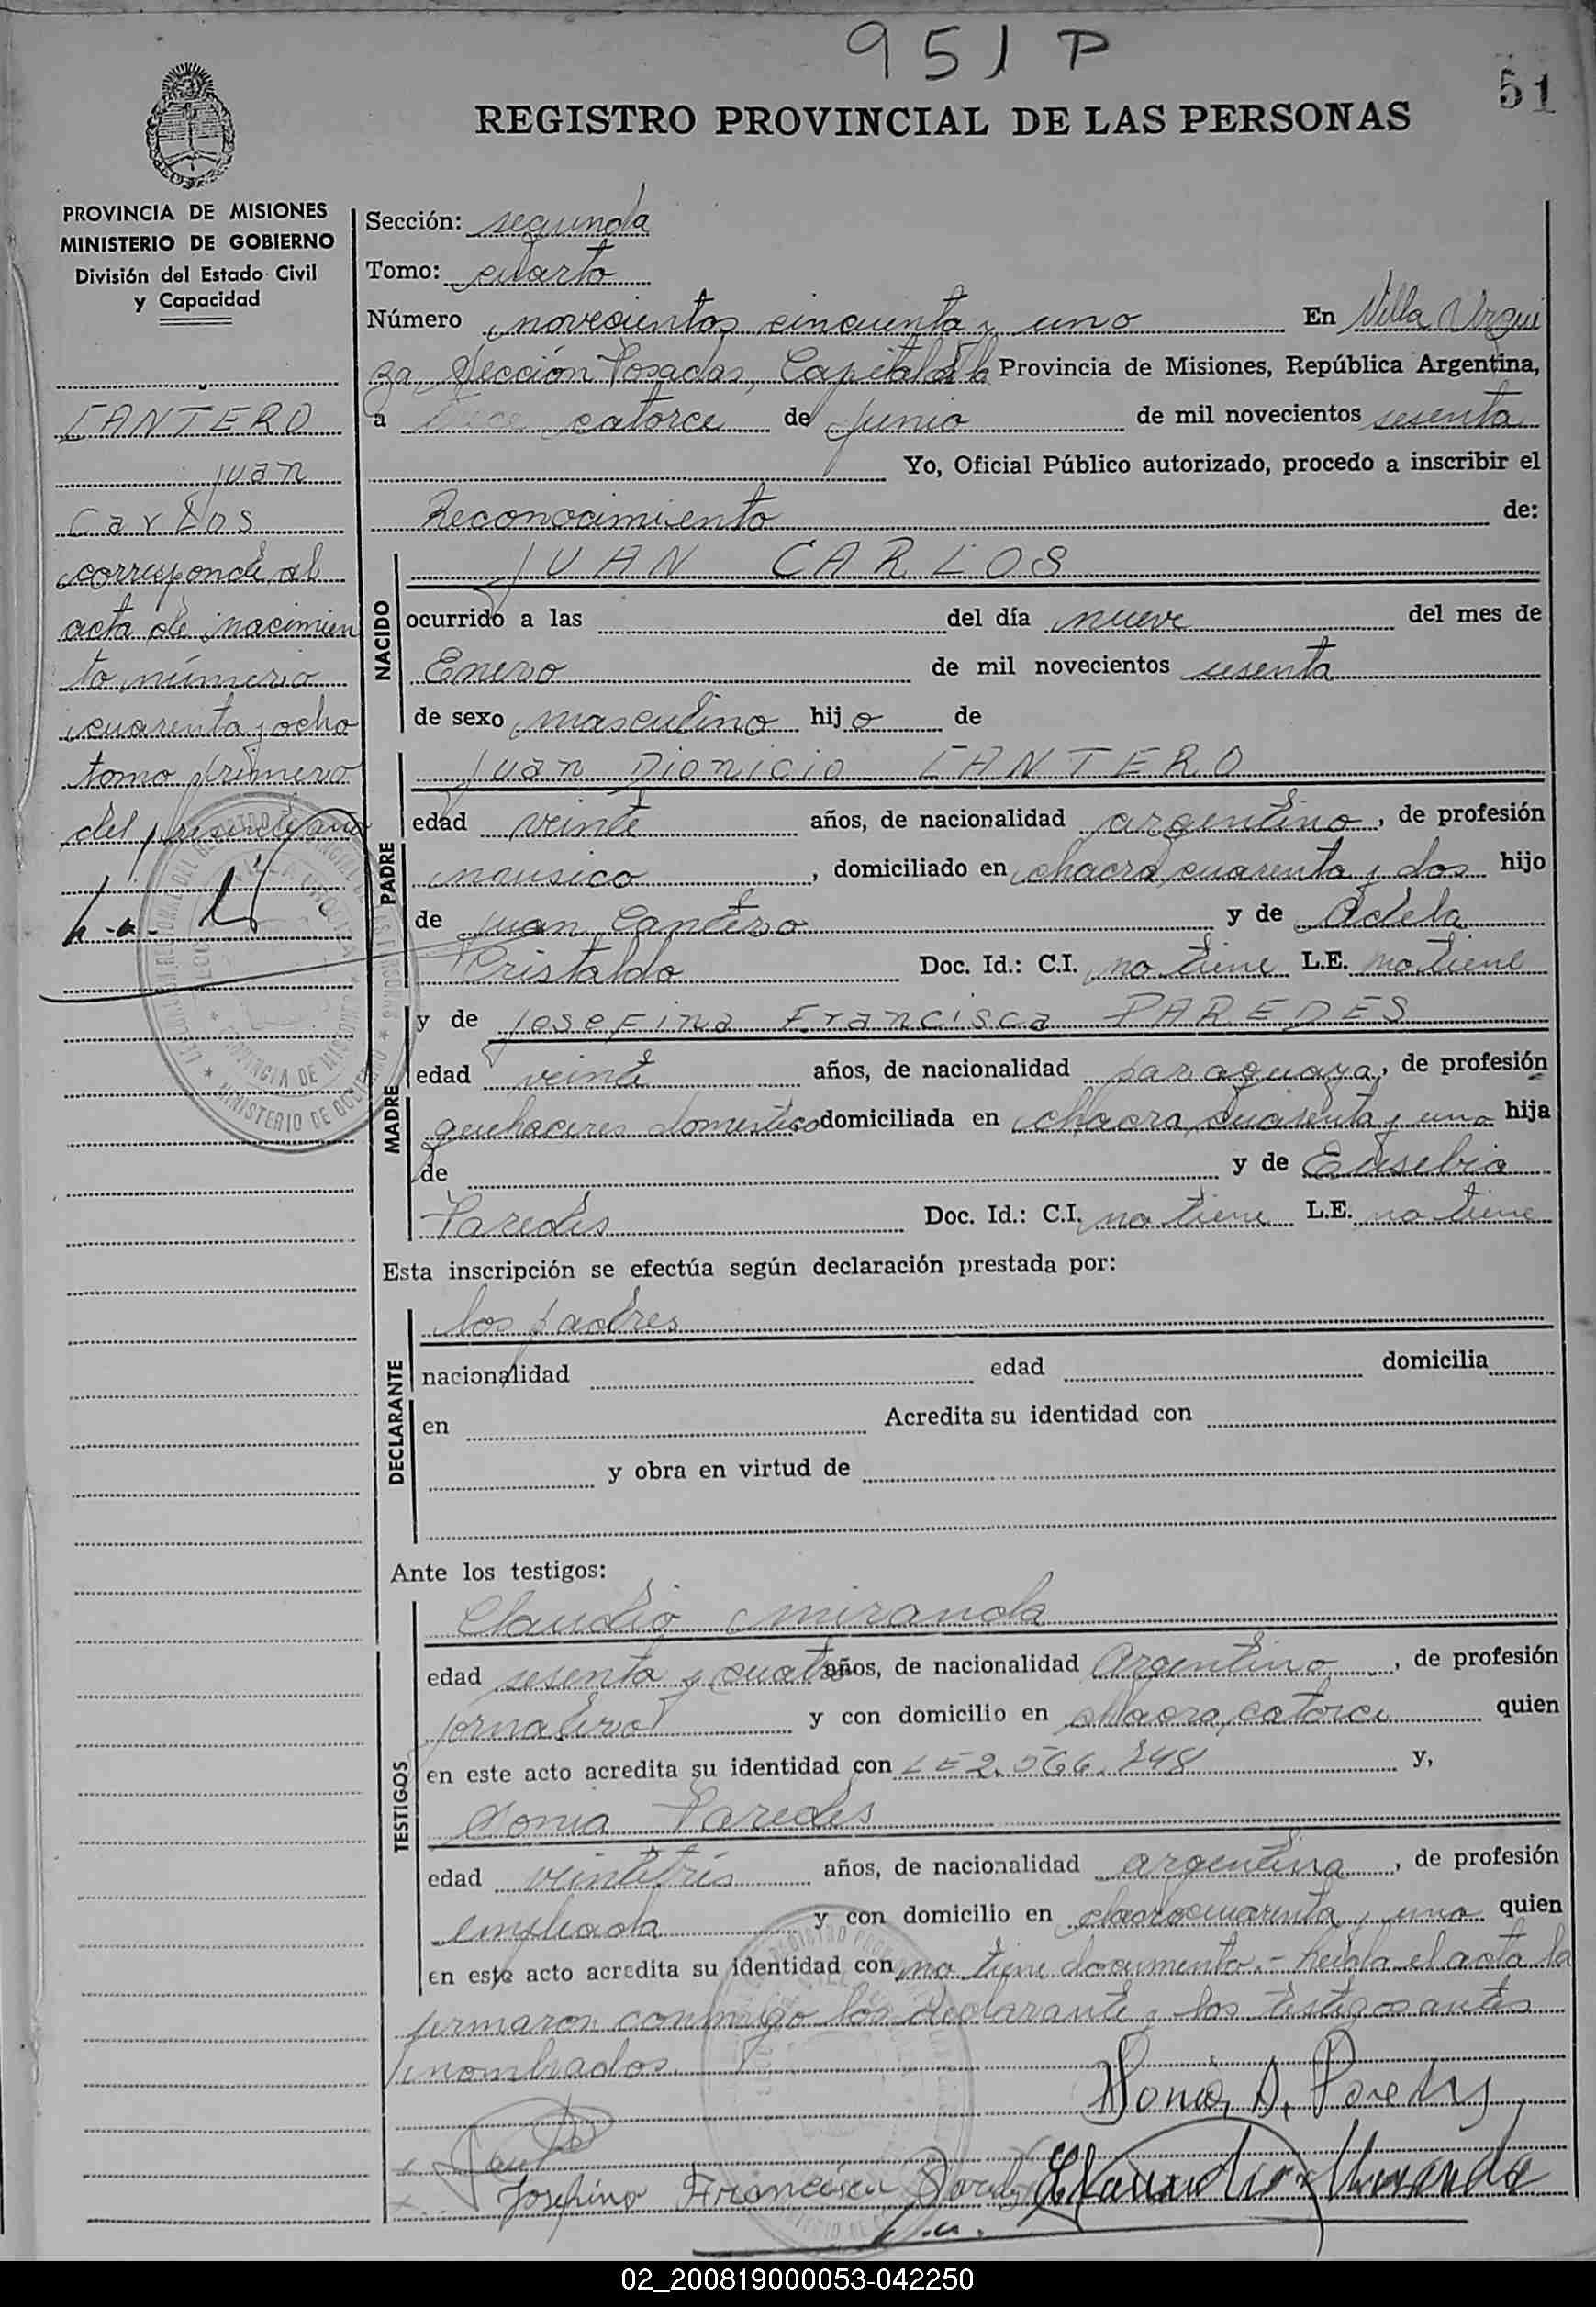 951 P
51
REGISTRO PROVINCIAL DE LAS PERSONAS
PROVINCIA DE MISIONES
MINISTERIO DE GOBIERNO
División del Estado Civil
y Capacidad
CANTERO
Juan
Carlos
corresponde al
acta de nacimien
to número
cuarenta y ocho
tomo primero
del presente año
Sección: segunda
Tomo: cuarto
Número novecientos cincuenta y uno En Villa Urqui
za, Sección Posadas, Capital de la Provincia de Misiones, República Argentina,
a catorce de junio de mil novecientos sesenta
Yo, Oficial Público autorizado, procedo a inscribir el
Reconocimiento de:
NACIDO
JUAN CARLOS
ocurrido a las del día nueve del mes de
Enero de mil novecientos sesenta
de sexo masculino hijo de
PADRE
Juan Dionicio CANTERO
edad veinte años, de nacionalidad argentino, de profesión
musico, domiciliado en chacra cuarenta y dos hijo
de Juan Cantero y de Adela
Cristaldo Doc. Id.: C.I. no tiene L.E. no tiene
MADRE
y de Josefina Francisca PAREDES
edad veinte años, de nacionalidad paraguaya, de profesión
quehaceres domestico domiciliada en chacra cuarenta y una hija
de y de Eusebia
Paredes Doc. Id.: C.I. no tiene L.E. no tiene
Esta inscripción se efectúa según declaración prestada por:
DECLARANTE
los padres
nacionalidad edad domicilia
en Acredita su identidad con
y obra en virtud de
Ante los testigos:
TESTIGOS
Claudio Miranda
edad sesenta y cuatro años, de nacionalidad Argentino, de profesión
jornalero y con domicilio en chacra catorce quien
en este acto acredita su identidad con LE 2.566.748 y,
Sonia Paredes
edad veintitrés años, de nacionalidad argentina, de profesión
empleada y con domicilio en chacra cuarenta y una quien
en este acto acredita su identidad con no tiene documento.- heida el acta la
firmaron conmigo los declarante y los testigos antes
nombrados.
Sonia D. Paredes
Josefina Francisca Paredes Claudio Miranda
02_200819000053-042250